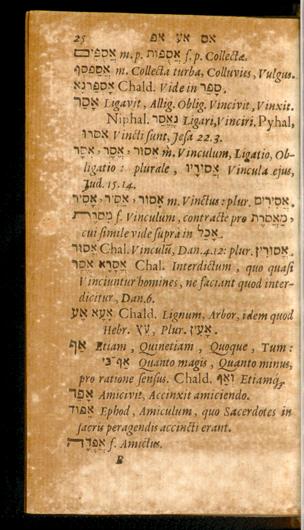 25 אס אע אפ
אֲסֻפִּים m. p. אֲסֻפּוֹת f. p. Collectæ.
אֲסַפְסֻף m. Collecta turba, Colluvies, Vulgus.
אָסְפַּרְנָא Chald. Vide in סָפַר.
אָסַר Ligavit, Allig. Oblig. Vincivit, Vinxit.
Niphal. נֶאְסַר Ligari, Vinciri. Pyhal,
אסרו Vincti sunt, Jesa 22.3.
אסור, אֱסָר, אִסָּר m. Vinculum, Ligatio, Ob-
ligatio: plurale, אֲסוּרָיו Vincula ejus,
Jud. 15.14.
אָסוּר, אָסִיר, אַסִּיר m. Vinctus: plur. אֲסִירִים.
מָסֹרֶת f. Vinculum, contracte pro מַאֲסֹרֶת,
cui simile vide supra in אָכַל.
אסור Chal. Vinculū, Dan. 4.12: plur. אֱסוּרִין.
אֱסָרָא אסר Chal. Interdictum, quo quasi
Vinciuntur homines, ne faciant quod inter-
dicitur, Dan. 6.
אָעָא אע Chald. Lignum, Arbor, idem quod
Hebr. עֵץ, Plur. אָעִין.
אַף Etiam, Quinetiam, Quoque, Tum:
אַף כִּי Quanto magis, Quanto minus,
pro ratione sensus. Chald. וְאַף Etiamq;
אָפַד Amicivit, Accinxit amiciendo.
אֵפוֹד Ephod, Amiculum, quo Sacerdotes in
sacris peragendis accincti erant.
אֲפֻדָּה f. Amictus.
B